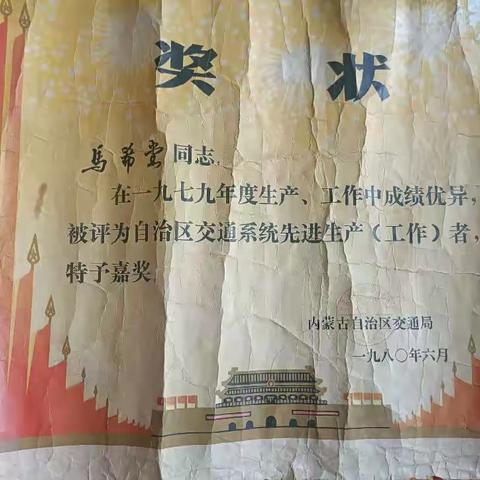 奖状
马希棠同志:
在一九七九年度生产、工作中成绩优异,
被评为自治区交通系统先进生产(工作)者,
特予嘉奖
内蒙古自治区交通局
一九八〇年六月